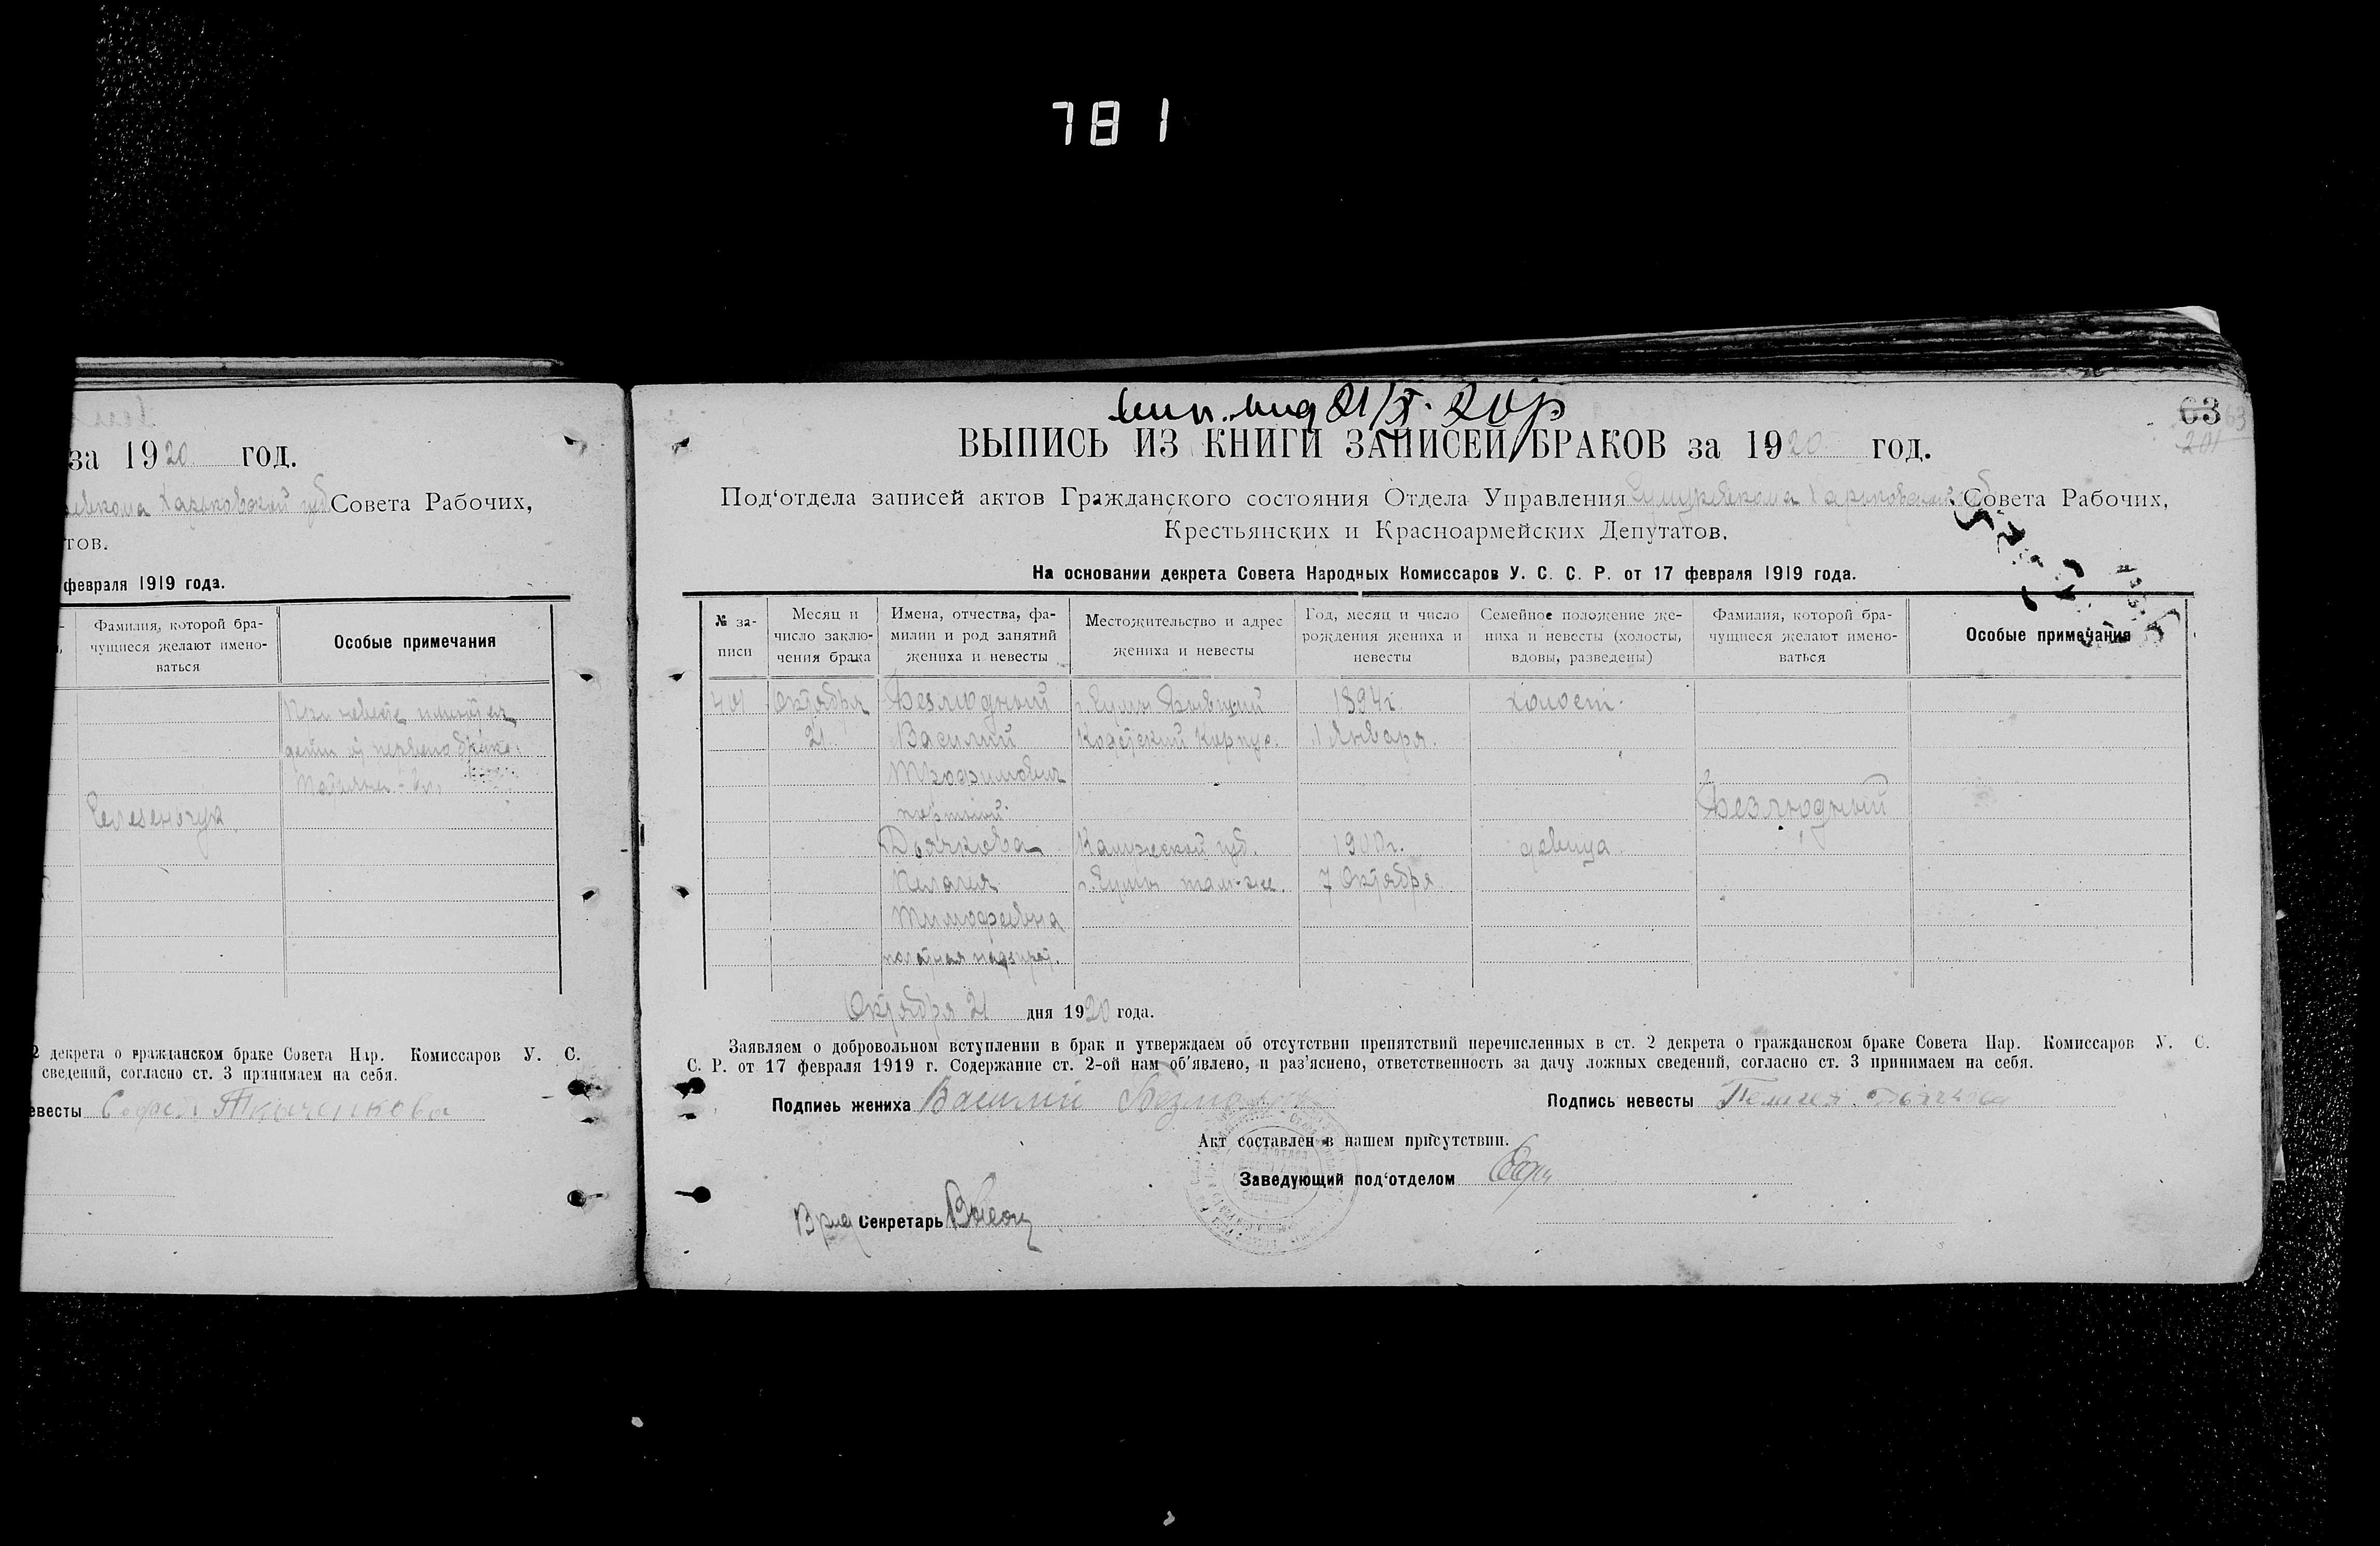 781
за 1920 год.
Харьковской губ Совета Рабочих,
тов.
февраля 1919 года.
Фамилия, которой бра-
чущиеся желают имено-
ваться
Особые примечания
дети от первого брака:
2 декрета о гражданском браке Совета Нар. Комиссаров У. С.
сведений, согласно ст. 3 принимаем на себя.
евесты Ткаченкова
63
ВЫПИСЬ ИЗ КНИГИ ЗАПИСЕЙ БРАКОВ за 1920 год.
Под‘отдела записей актов Гражданского состояния Отдела Управления Харьковской Совета Рабочих,
Крестьянских и Красноармейских Депутатов.
На основании декрета Совета Народных Комиссаров У. С. С. Р. от 17 февраля 1919 года.
№ за-
писи
Месяц и
число заклю-
чения брака
Имена, отчества, фа-
милии и род занятий
жениха и невесты
Местожительство и адрес
жениха и невесты
Год, месяц и число
рождения жениха и
невесты
Семейное положение же-
ниха и невесты (холосты,
вдовы, разведены)
Фамилия, которой бра-
чущиеся желают имено-
ваться
Особые примечания
401 Октября Безлюдный г. Сумы Бывший 1894г. холост.
21 Василий Кадетский Корпус. 1 Января.
Трофимович
портной Безлюдный
Дьячкова Калужской губ. 1900г. девица.
Пелагея г. Сумы там-же. 7 Октября
Тимофеевна
Октября 21 дня 1920 года.
Заявляем о добровольном вступлении в брак и утверждаем об отсутствии препятствий перечисленных в ст. 2 декрета о гражданском браке Совета Нар. Комиссаров У. С.
С. Р. от 17 февраля 1919 г. Содержание ст. 2-ой нам об‘явлено, и раз’яснено, ответственность за дачу ложных сведений, согласно ст. 3 принимаем на себя.
Подпись жениха Василий
Подпись невесты Пелагея Дьячкова
Акт составлен в нашем присутствии.
Заведующий под‘отделом
Врид Секретарь